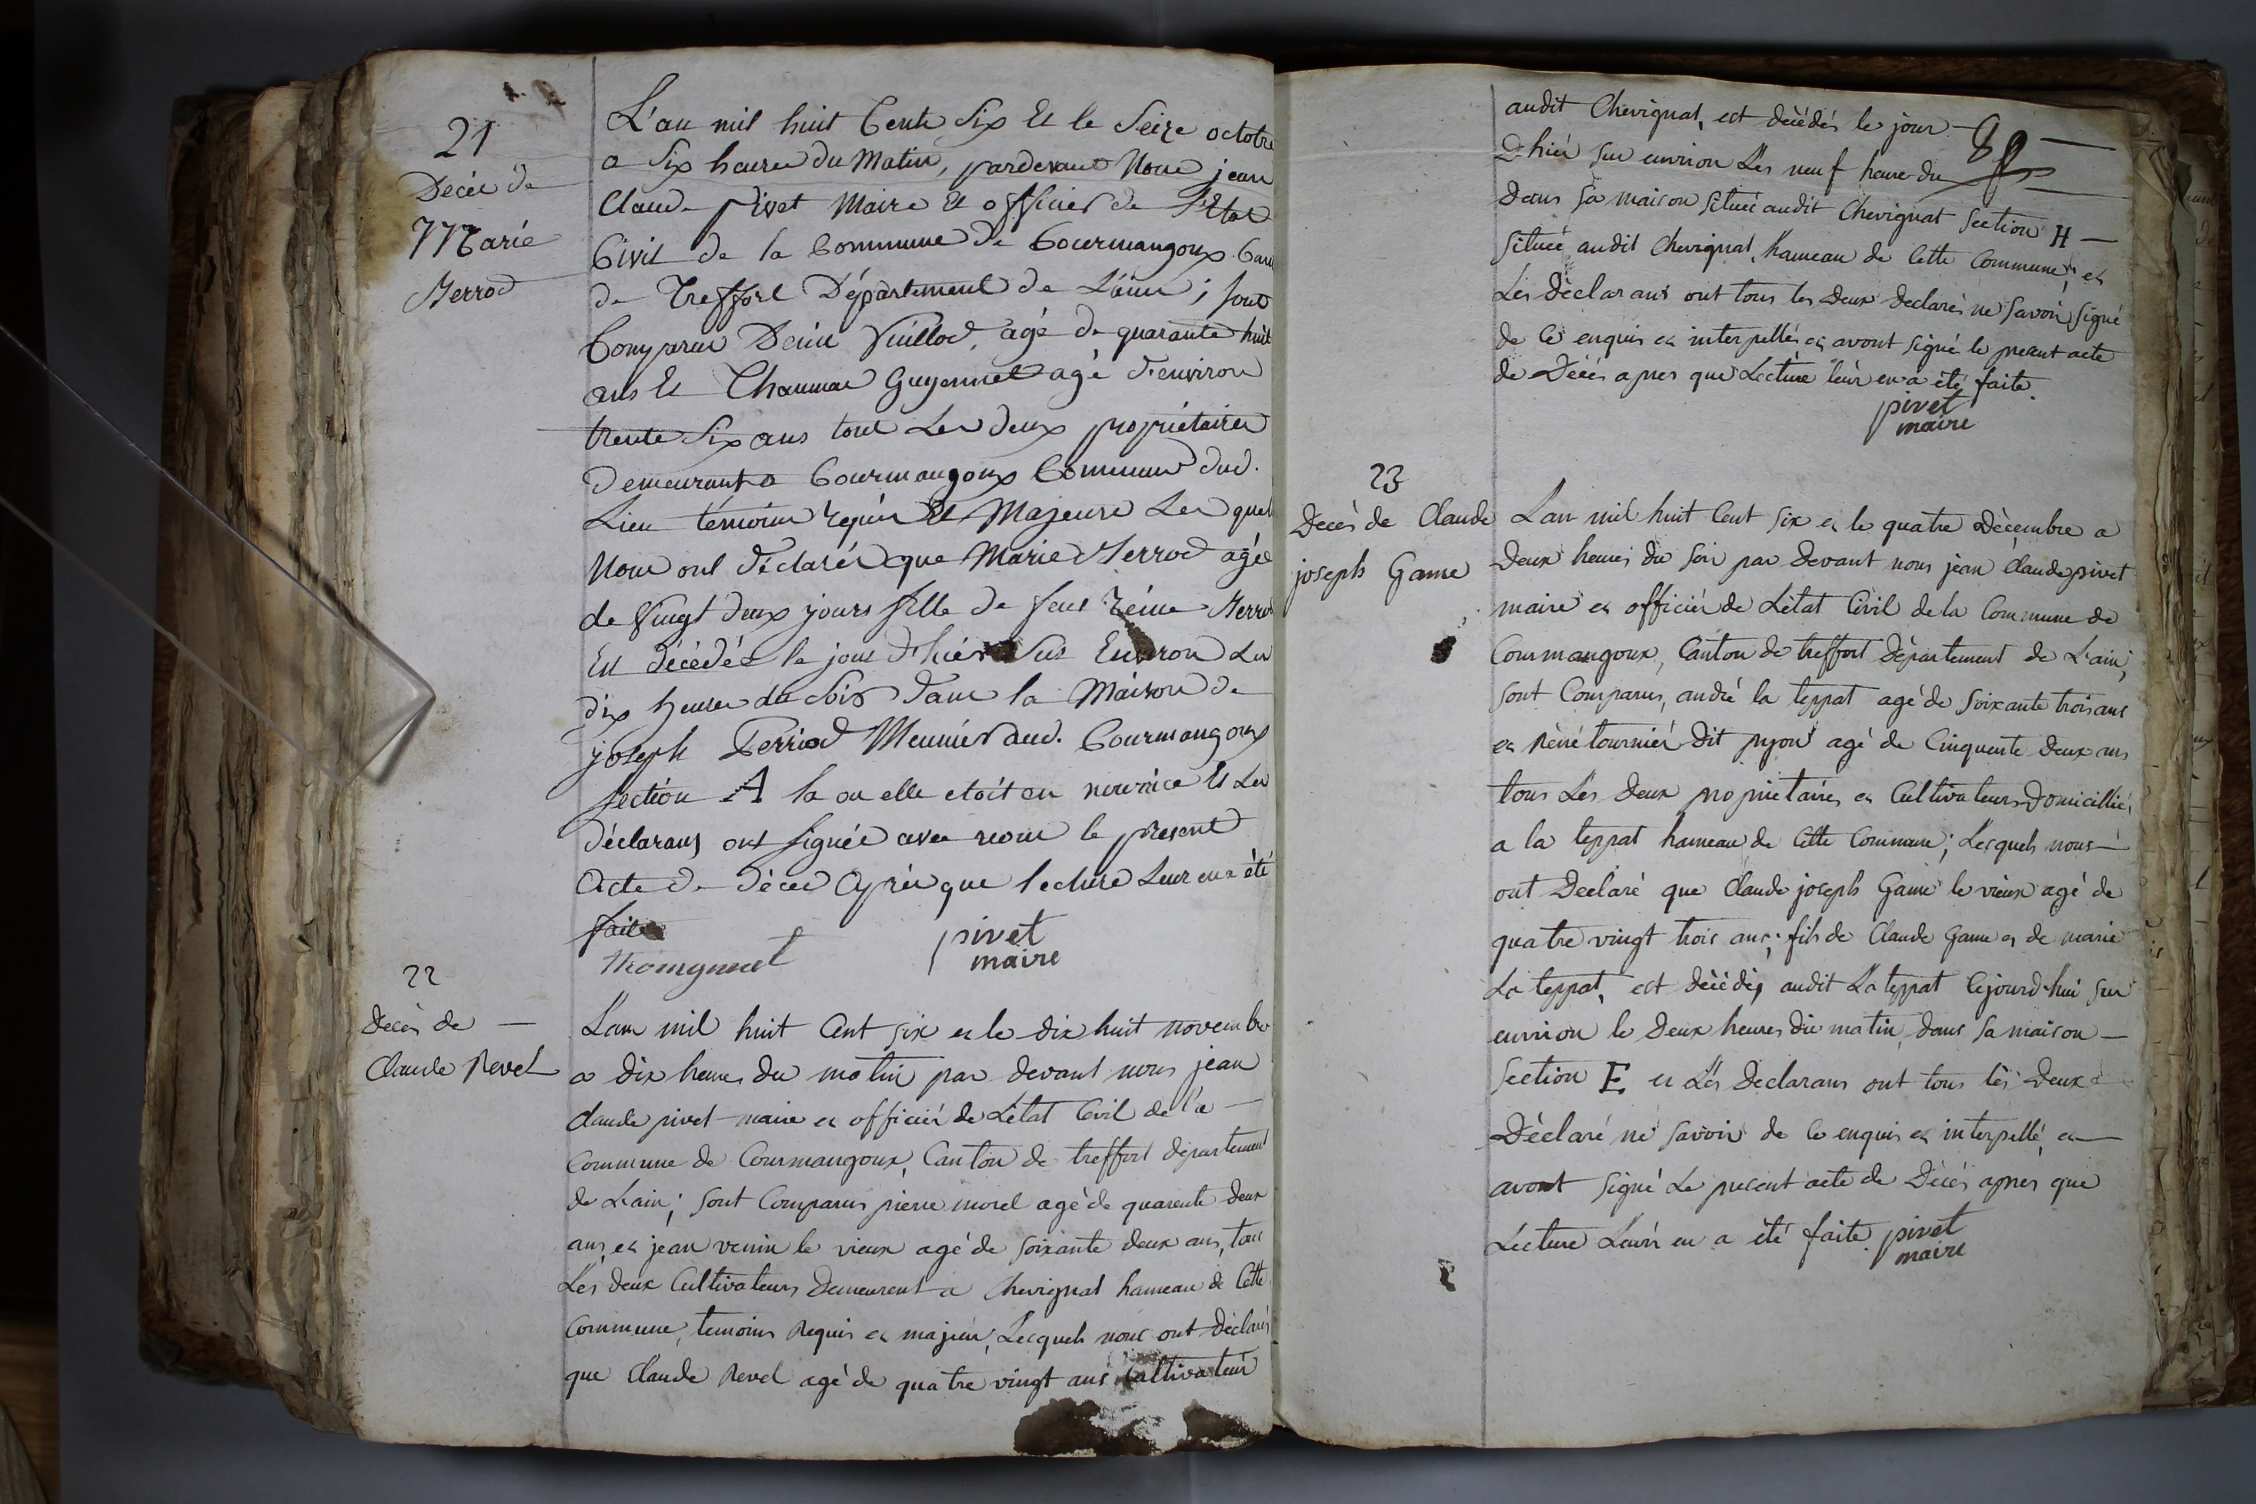 21
Décès de
Marie
Perrod
L'an mil huit Cents Six Et le Seize octobre
a Six heures du Matin, pardevant Nous jean
Claude pivet Maire Et officier de L'Etat
Civil de la Commune de Courmangoux Can
de Treffort Département de L'ain; sont
Comparus Denis Vuillod, agé de quarante huit
ans Et Thaumas Guyennet agé d'environ
trente Six ans tous Les deux propriétaires
demeurant a Courmangoux Commune dud.
Lieu témoins requis Et Majeurs Les quels
Nous ont déclarés que Marie Perrod agée
de Vingt deux jours fille de feus Réné Perrod
Est décédée le jour d'hiér Sur Environ Les
dix heures du Soir dans la Maison de
joseph Perriod Meuniér aud. Courmangoux
Section A la ou elle etoit en nourrice Et Les
déclarans ont Signée avec nous le present
Acte de décès Après que lecture Leur en a été
faite
pivet
maire
22
Decès de —
Claude Revel
L'an mil huit Cent six et le dix huit novembre
a dix heures du matin par devant nous jean
Claude pivet maire et officiér de L'état Civil de la —
Commune de Courmangoux, Canton de treffort departement
de L'ain; sont Comparus pierre morel agé de quarente deux
ans, et jean venin le vieux agé de soixante deux ans, tous
Les deux Cultivateurs Demeurent a Chevignat hameau de Cette
Commune, temoins Requis et majeur, Lesquels nous ont déclarés
que Claude Revel agé de quatre vingt ans Cultivateur
audit Chevignat, est décédés le jour —
D'hiér sur environ Les neuf heure du
Dans sa maison située audit Chevignat Section H —
Située audit Chevignat, hameau de Cette Commune, et
Les Déclarans ont tous les deux declarés ne savoir signé
de Ce enquis et interpellés et avont signé le present acte
de Décès apres que Lecture leur en a été faite.
pivet
maire
23
Decès de Claude
joseph Game
L'an mil huit Cent six et le quatre Décembre a
Deux heures du soir par Devant nous jean Claude pivet
maire et officiér de L'état Civil de la Commune de
Courmangoux, Canton de treffort Département de L'ain,
sont Comparus, andré la teppat agé de soixante trois ans
et Réné tourniér Dit pyon agé de Cinquente Deux ans
tous Les Deux propriétaires et Cultivateurs Domicilliés
a la teppat hameau de Cette Commune; Lesquels nous —
ont Declaré que Claude joseph Game le vieux agé de
quatre vingt trois ans, fils de Claude Game et de marie
La teppat, est décédés, audit La teppat Cejourd'hui sur
environ le Deux heures du matin, dans sa maison —
Section E et Les Declarans ont tous les Deux
Déclaré ne savoir de Ce enquis et interpellé et —
avont signé Le present acte de Décès après que
Lecture Leur en a été faite. pivet
maire